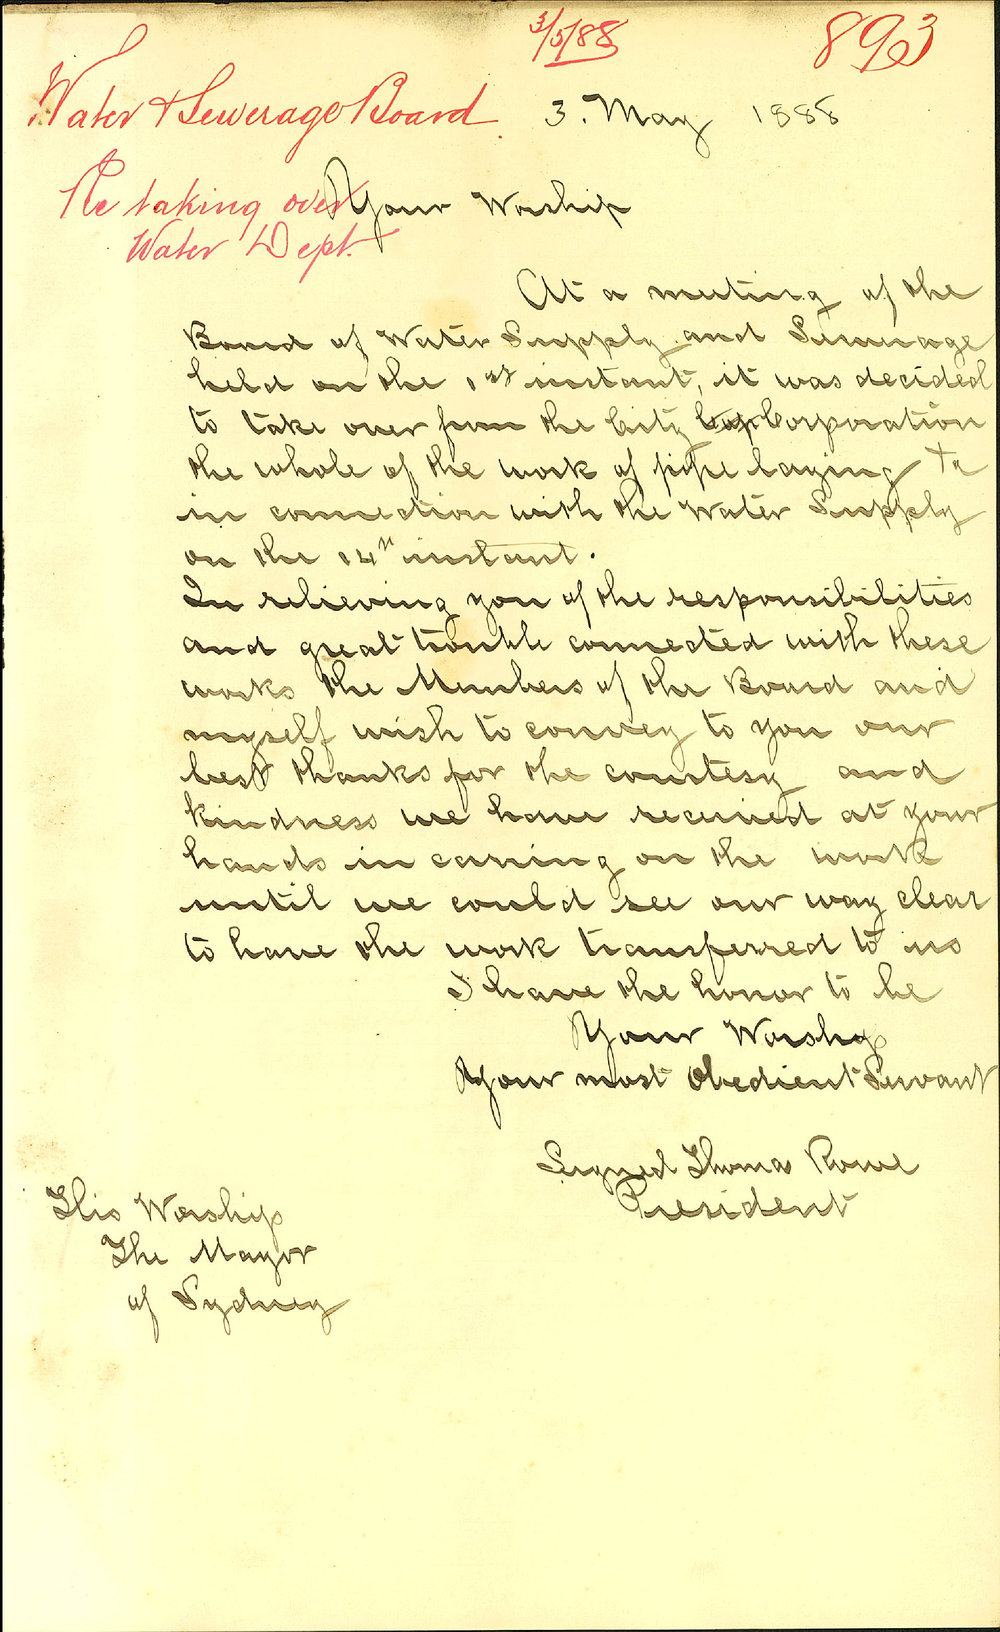 3/5/88
893
Water & Sewerage Board
3. May 1888
Re taking over
Water Dept.
Your Worship
At a meeting of the
Board of Water Supply and Sewerage
held on the 1st instant, it was decided
to take over from the City Cor Corporation
the whole of the work of pipe laying &c
in connection with the Water Supply
on the 14th instant.
In relieving you of the responsibilities
and great trouble connected with these
works the Members of the Board and
myself wish to convey to you our
best thanks for the courtesy and
kindness we have received at your
hands in carring on the work
until we could see our way clear
to have the work transferred to us
I have the honor to be
Your Worship
Your most Obedient Servant
Signed Thomas Rowe
President
His Worship
The Mayor
of Sydney